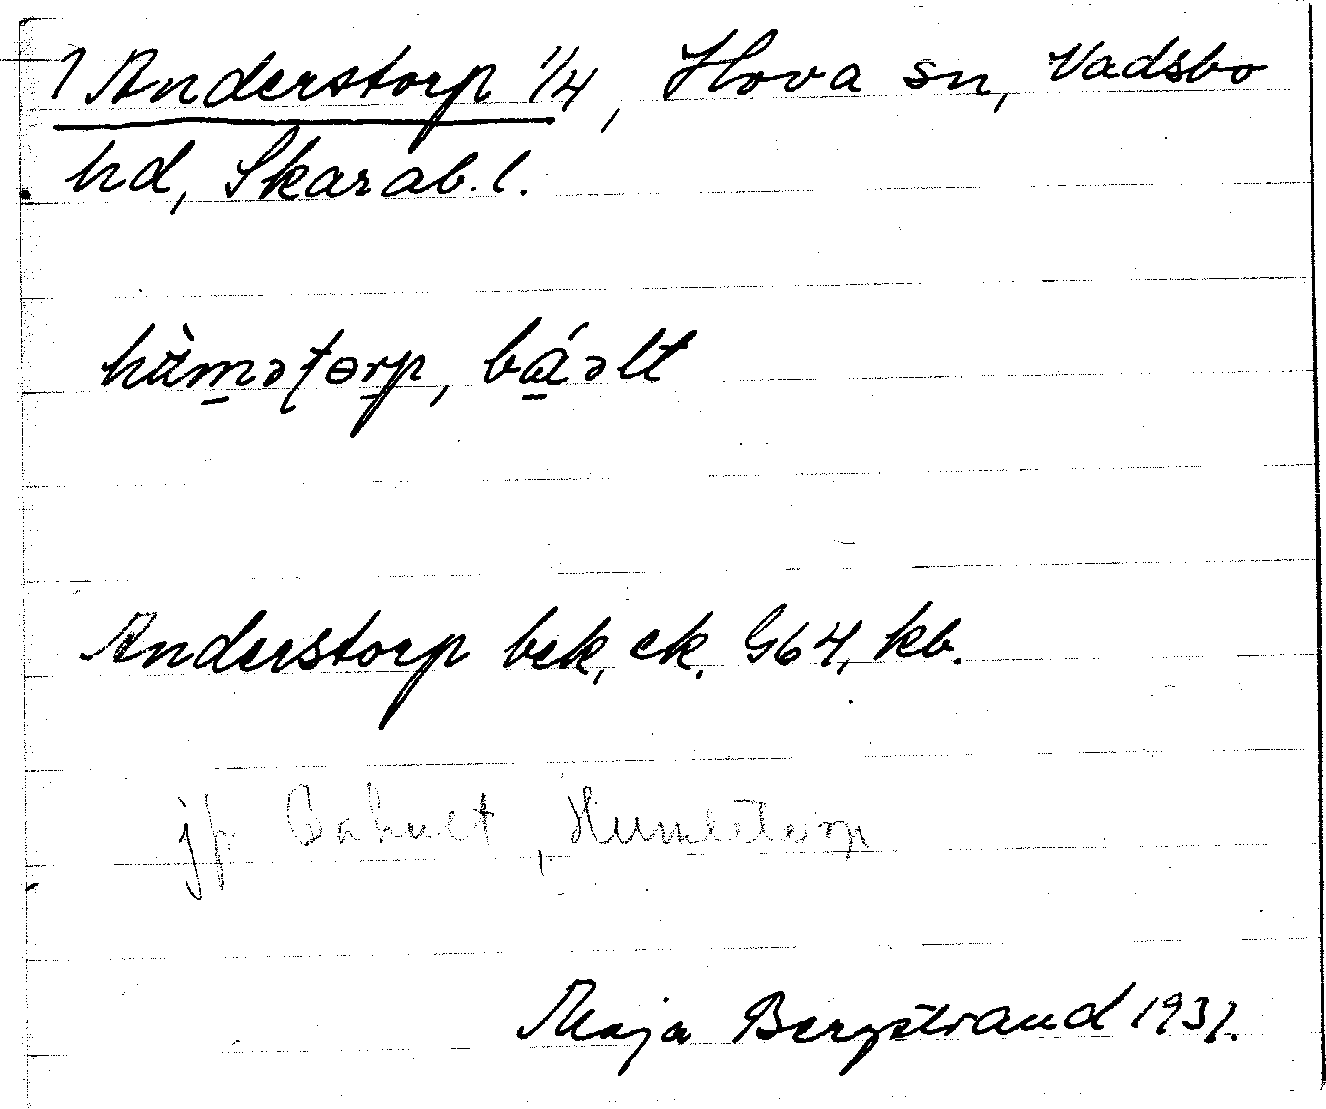 1 Anderstorp 1/4, Hova sn, Vadsbo
hd, Skarab. l.
hùmətɵrp, báəlt
Anderstorp bek, ek. G64, kb.
jfr Bahult, Humletorp
Maja Bergstrand 1931.